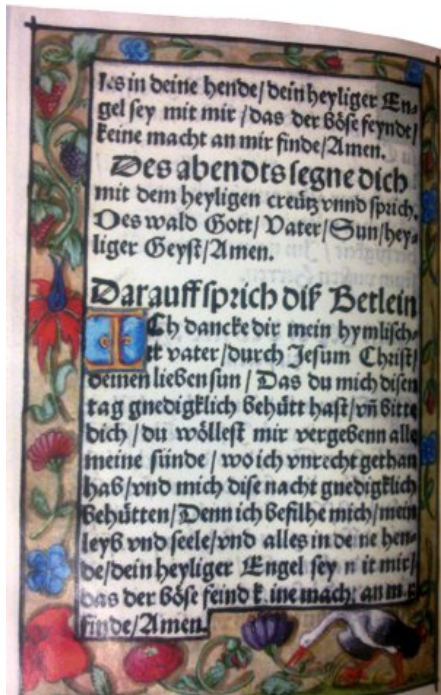 les in deine hende/dein heyliger En-
gel sey mit mir/das der böse feynde/
keine macht an mir finde/Amen.
Des abendts segne dich
mit dem heyligen creütz vnnd sprich.
Des wald Gott/Vater/Sun/hey-
liger Geyst/Amen.
Darauff sprich diß Betlein
ICh dancke dir mein hymlisch-
er vater/durch Jesum Christ/
deinen lieben sun/Das du mich disen
tag gnedigklich behütt hast/vñ bitte
dich/du wöllest mir vergebenn alle
meine sünde/wo ich vnrecht gethan
hab/vnd mich dise nacht gnedigklich
behütten/Denn ich befilhe mich/mein
leyb vnd seele/vnd alles in deine hen-
de/dein heyliger Engel sey mit mir/
das der böse feind keine macht an mir
finde/Amen.